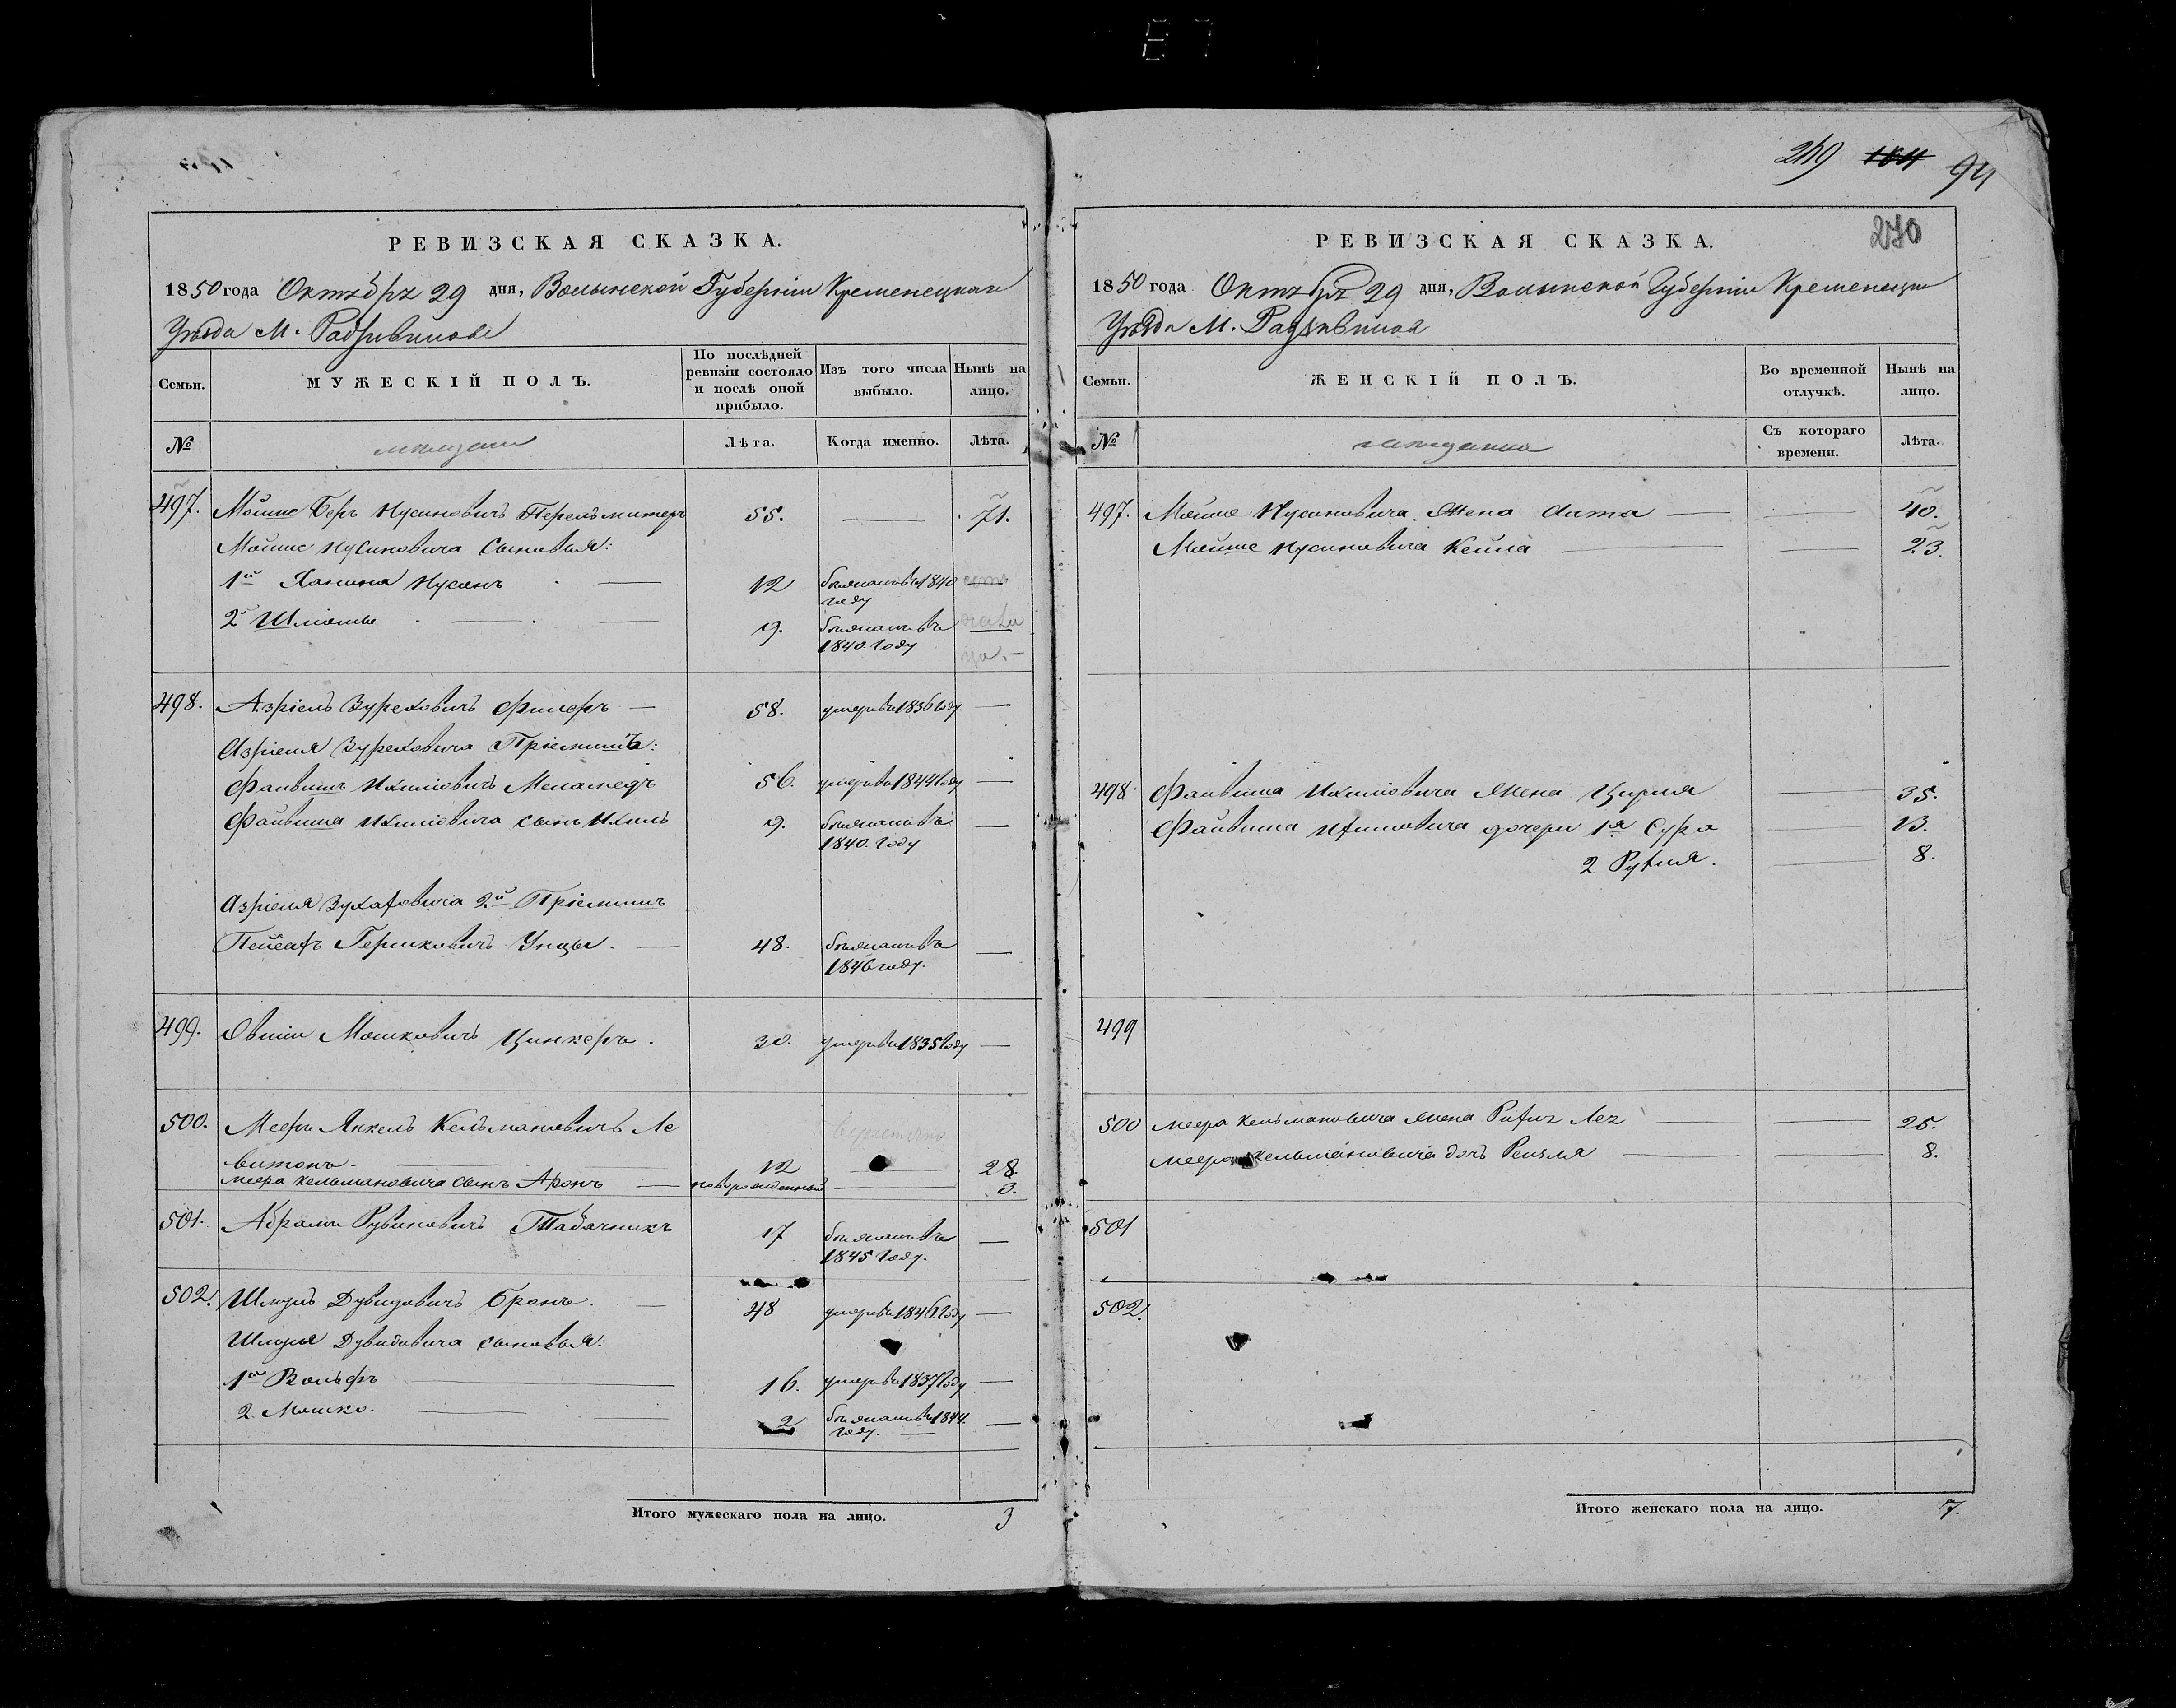 249 184 94
270
РЕВИЗСКАЯ СКАЗКА.
1850 года Октября 29 дня, Волынской Губерніи Кременецкаго
Уѣзда М. Радзивилова
Семьи.
МУЖЕСКІЙ ПОЛЪ.
По послѣдней ревизіи состояло и послѣ оной прибыло.
Изъ того числа выбыло.
Нынѣ на лицо.
№ мѣщане Лѣта. Когда именно. Лѣта.
497. Мошко Беръ Нусиновичъ Перельмитеръ 55. — 71.
Мошко Нусиновича сыновья:
1й Ханина Нусонъ 12 бѣжалъ въ 1840 году
2й Шліома 9. бѣжалъ въ 1840 году
498. Азріель Зуреховичъ Фишеръ — 58. умеръ въ 1836 году —
Азріеля Зуреховича Пріемышъ:
Файвишъ Ихиліовичъ Меламедъ 56. умеръ въ 1844 году —
Файвиша Ихиліовича сынъ Ихиль 9. бѣжалъ въ 1840 году —
Азріеля 2й Пріемышъ
Пейсахъ Гершковичъ 48. бѣжалъ въ 1846 году. —
499. Овшія Мошковичъ Цинкеръ. 30. умеръ въ 1835 году —
500. Мееръ Янкель Кельмановичъ Ле
витонъ. — 12 — 28.
Меера Кельмановича сынъ Аронъ — новорожденный — 3.
501. Абрамъ Рувиновичъ Табачникъ 17 бѣжалъ въ 1845 году. —
502. Шмуль Дувидовичъ Бронъ. — 48 умеръ въ 1846 году —
Шмуля Дувидовича сыновья:
1й Вольфъ — 16. умеръ въ 1837 году —
2. Мошко. — 2 бѣжалъ въ 1844 году. —
Итого мужескаго пола на лицо. 3
РЕВИЗСКАЯ СКАЗКА.
1850 года Октября 29 дня, Волынской Губерніи Кременецкаго
Уѣзда М. Радзивилова
Семьи.
ЖЕНСКІЙ ПОЛЪ.
Во временной отлучкѣ.
Нынѣ на лицо.
№ мѣщанки Съ котораго времени. Лѣта.
497. Мошко Нусиновича Жена — — 40.
Мошко Нусиновича Кейла — — 23.
498 Файвиша Ихиліовича Жена Цирля — 35.
Файвиша Ихиліовича дочери 1я Сура — 13.
2 Рухля. — 8.
499
500 Меера Кельмановича жена — — 25.
Меера Кельмановича дочь Рейзля — — 8.
501
502.
Итого женскаго пола на лицо. 7.